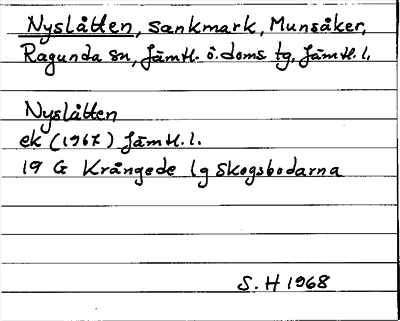 Nyslåtten, sankmark, Munsåker,
Ragunda sn, Jämtl. ö. doms tg, Jämtl. l.
Nyslåtten
ek (1967) Jämtl. l.
19 G Krångede lg Skogsbodarna
S. H 1968